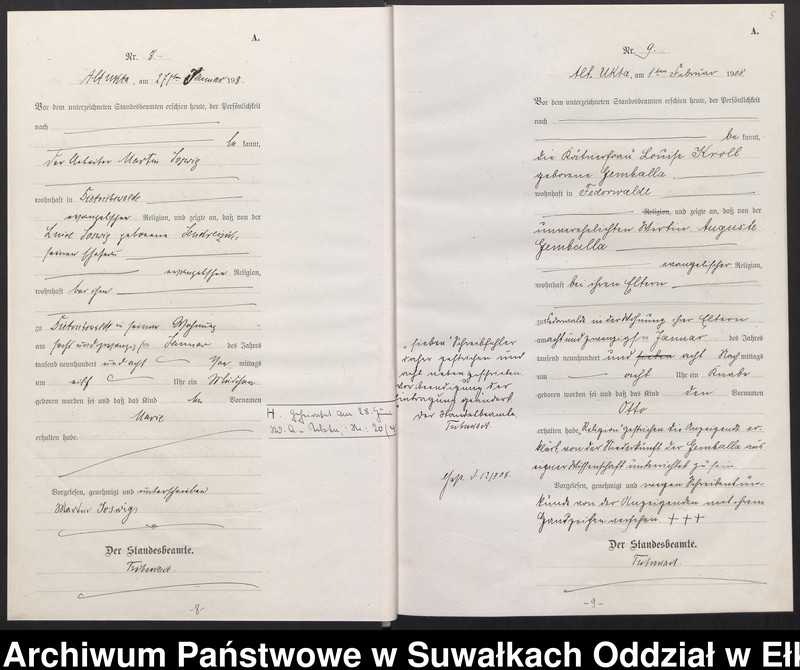 A.
Nr. 8.
Alt Ukta, am 27ten Januar 1908.
Vor dem unterzeichneten Standesbeamten erschien heute, der Persönlichkeit
nach
be kannt,
der Arbeiter Martin Joswig
wohnhaft in Dietrichswalde
evangelischer Religion, und zeigte an, daß von der
Joswig geborene
seiner Ehefrau
evangelischer Religion,
wohnhaft bei ihm
zu Dietrichswalde in seiner Wohnung
am sechs und zwanzigsten Januar des Jahres
tausend neunhundert und acht Vor mittags
um elf Uhr ein Mädchen
geboren worden sei und daß das Kind den Vornamen
Marie
erhalten habe.
Vorgelesen, genehmigt und unterschrieben
Martin Joswig
Der Standesbeamte.
-8-
H. Geheiratet am 28.
Nr. 20/4
5
A.
Nr. 9.
Alt Ukta, am 1ten Februar 1908.
Vor dem unterzeichneten Standesbeamten erschien heute, der Persönlichkeit
nach
be kannt,
die Kätnerfrau Louise Kroll
geborene Gemballa
wohnhaft in Fedorwalde
Religion, und zeigte an, daß von der
unverehelichten Wirtin Auguste
Gemballa
evangelischer Religion,
wohnhaft bei ihren Eltern
zu Fedorwalde in der Wohnung ihrer Eltern
am acht und zwanzigsten Januar des Jahres
tausend neunhundert und sieben acht Nach mittags
um acht Uhr ein Knabe
geboren worden sei und daß das Kind den Vornamen
Otto
erhalten habe. "Religion" gestrichen die Anzeigende er-
klärt, von der Niederkunft der Gemballa aus
eigener Wissenschaft unterrichtet zu sein
Vorgelesen, genehmigt und wegen Schreibensun-
kunde von der Anzeigenden mit ihrem
Handzeichen versehen. +++
Der Standesbeamte.
-9-
"sieben" Schreibfehler
daher gestrichen und
acht neben geschrieben
vor Beendigung der
Eintragung geändert
Der Standesbeamte.
Archiwum Państwowe w Suwałkach Oddział w Eł